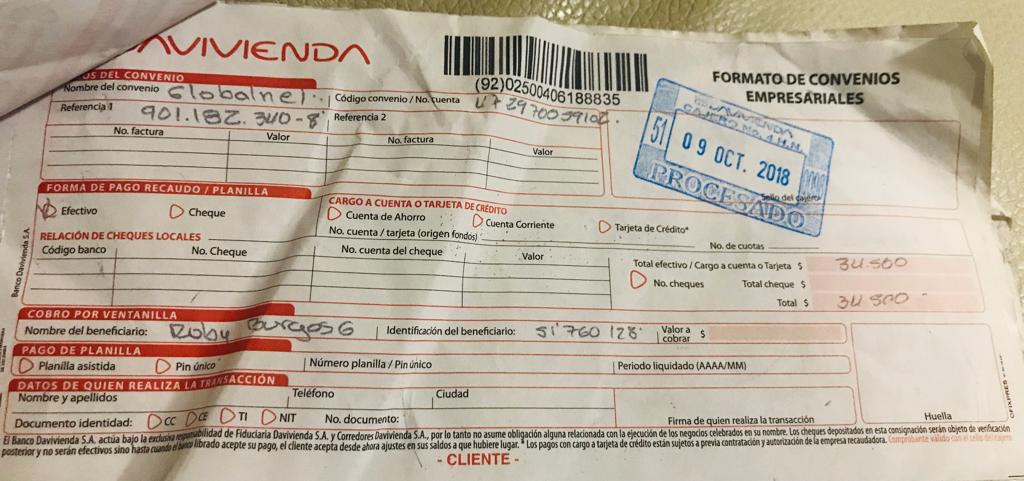 DAVIVIENDA
(92)02500406188835
FORMATO DE CONVENIOS
EMPRESARIALES
OS DEL CONVENIO
Nombre del convenio Globalnet
Código convenio / No. cuenta
Referencia 1 901.182.340-8
Referencia 2
No. factura Valor No. factura Valor
DAVIVIENDA
51 09 OCT. 2018
PROCESADO
Sello del cajero
FORMA DE PAGO RECAUDO / PLANILLA
Efectivo Cheque
CARGO A CUENTA O TARJETA DE CRÉDITO
Cuenta de Ahorro Cuenta Corriente Tarjeta de Crédito*
No. cuenta / tarjeta (origen fondos) No. de cuotas
RELACIÓN DE CHEQUES LOCALES
Código banco No. Cheque No. cuenta del cheque Valor
Total efectivo / Cargo a cuenta o Tarjeta $ 34.500
No. cheques Total cheque $
Total $ 34.500
Banco Davivienda S.A.
COBRO POR VENTANILLA
Nombre del beneficiario: Ruby Burgos G Identificación del beneficiario: 51'760128 Valor a cobrar $
PAGO DE PLANILLA
Planilla asistida Pin único Número planilla / Pin único Periodo liquidado (AAAA/MM)
DATOS DE QUIEN REALIZA LA TRANSACCIÓN
Nombre y apellidos Teléfono Ciudad
Documento identidad: CC CE TI NIT No. documento: Firma de quien realiza la transacción Huella
El Banco Davivienda S.A. actúa bajo la exclusiva responsabilidad de Fiduciaria Davivienda S.A. y Corredores Davivienda S.A., por lo tanto no asume obligación alguna relacionada con la ejecución de los negocios celebrados en su nombre. Los cheques depositados en esta consignación serán objeto de verificación
posterior y no serán efectivos sino hasta cuando el banco librado acepte su pago, el cliente acepta desde ahora ajustes en sus saldos a que hubiere lugar. * Los pagos con cargo a tarjeta de crédito están sujetos a previa contratación y autorización de la empresa recaudadora. Comprobante válido con el sello del cajero
- CLIENTE -